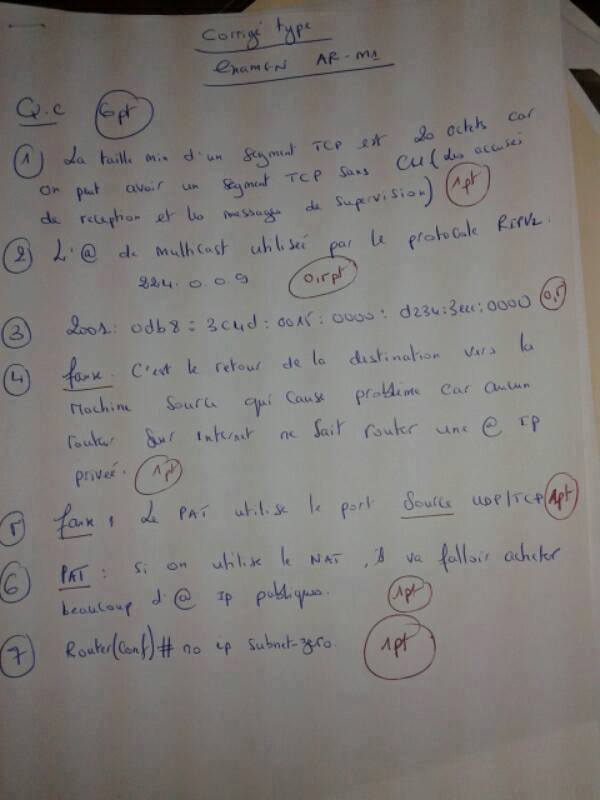 Corrigé type
examen AR-M1
Q.C 6pt
1 La taille min d'un segment TCP est 20 octets car
on peut avoir un segment TCP sans CU (les accusés
de reception et les messages de supervision) 1pt
2 L'@ de multicast utilisée par le protocole RIPV2.
224.0.0.9 0,5pt
3 2001: 0db8: 3C4d: 0015: 0000: d234: 3eee: 0000 0,5
4 faux. C'est le retour de la destination vers la
Machine Source qui cause problème car aucun
router sur Internet ne sait router une @ IP
privée. 1pt
5 faux, Le PAT utilise le port Source UDP/TCP 1pt
6 PAT: si on utilise le NAT, il va falloir acheter
beaucoup d'@ Ip publiques. 1pt
7 Router(Conf)# no ip subnet-zero. 1pt